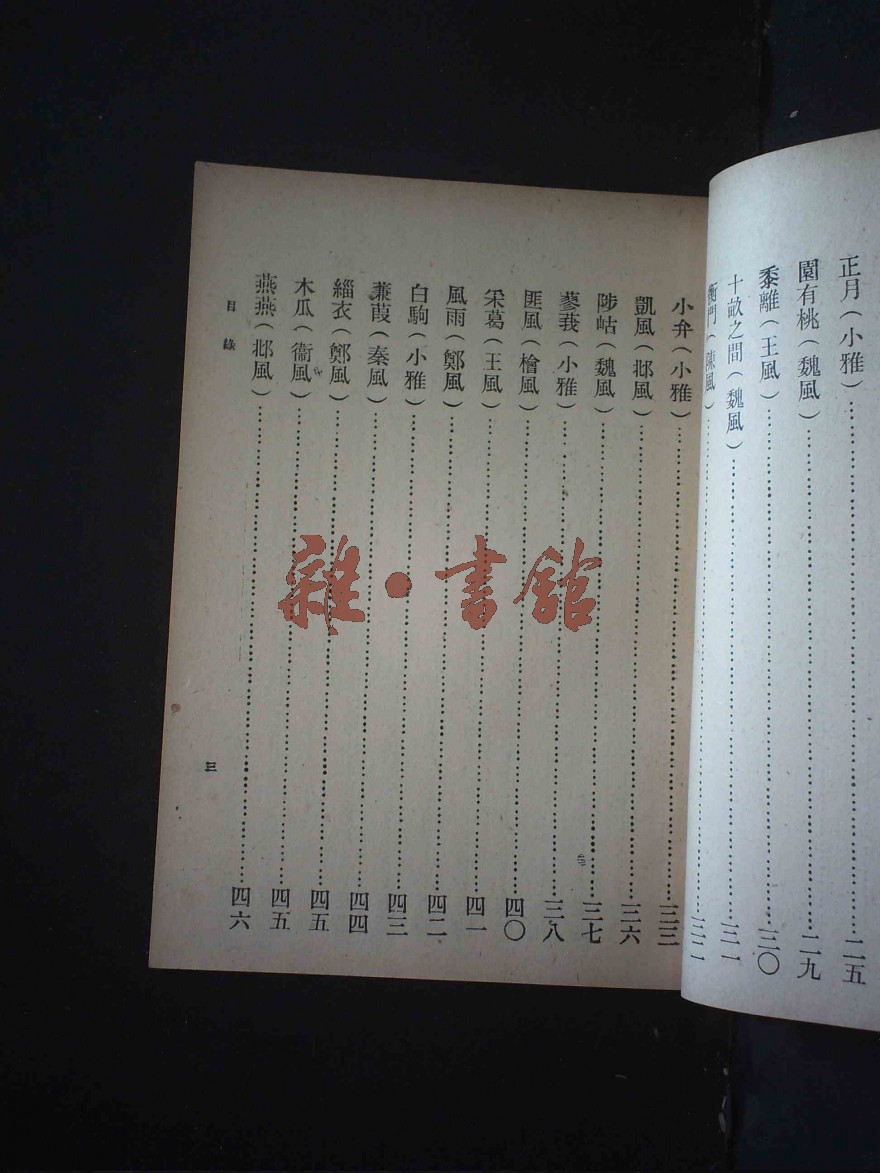 正月（小雅）……二五
園有桃（魏風）……二九
黍離（王風）……三〇
十畝之間（魏風）……三一
衡門（陳風）……三二
小弁（小雅）……三三
凱風（邶風）……三六
陟岵（魏風）……三七
蓼莪（小雅）……三八
匪風（檜風）……四〇
采葛（王風）……四一
風雨（鄭風）……四二
白駒（小雅）……四三
蒹葭（秦風）……四四
緇衣（鄭風）……四五
木瓜（衞風）……四五
燕燕（邶風）……四六
目錄
三
雜·書館